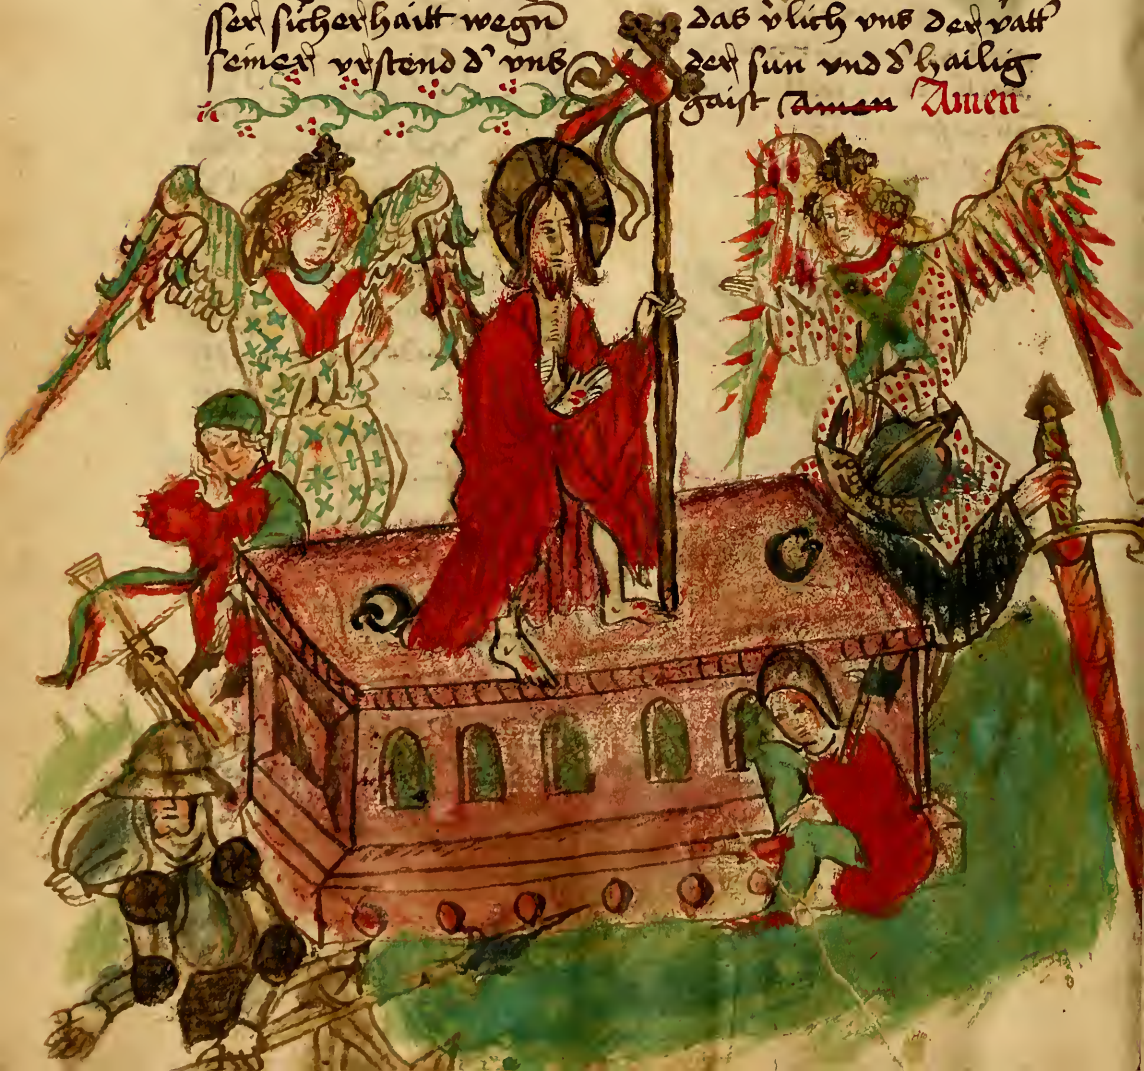 sser sicherhaitt wegn̄
seiner vrstend d' vns
das v̓lich vns der vatt'
der sun vnd d' hailig
gaist Amen Amen